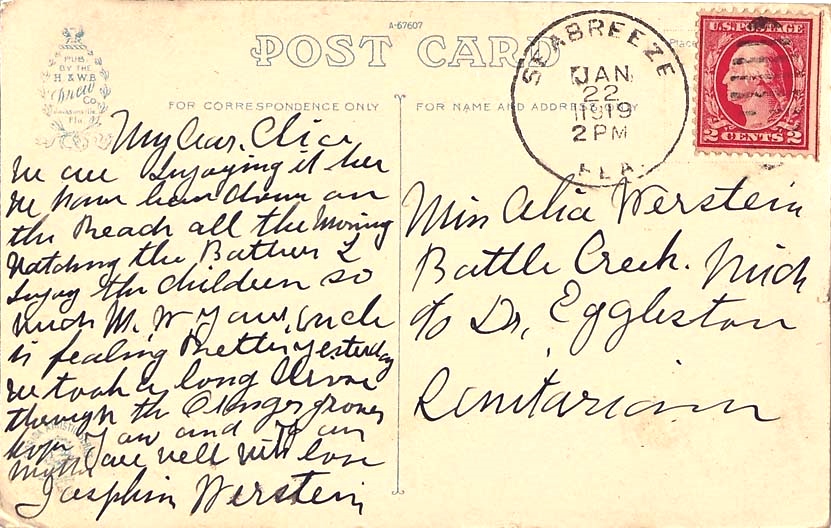 A-67607
POST CARD
PUB.
BY THE
H. & W.B.
Drew
Co.
Jacksonville,
Fla.
FOR CORRESPONDENCE ONLY
FOR NAME AND ADDRESS ONLY
Place
SEABREEZE
JAN
22
1919
2 PM
FLA.
U.S. POSTAGE
2 CENTS 2
My Dear Clia
we are Injoying it her
we have been down on
the Beach all the Morning
Watching the Bathers I
Injoy the Children so
much Mr. W your Uncle
is fealing Better yesterday
we took a long Drive
through the Oranges groves
hope you and your
Mother are well with love
Josephin Werstein
Miss Celia Werstein
Battle Creek. Mich
c/o Dr, Eggleston
Senitarium